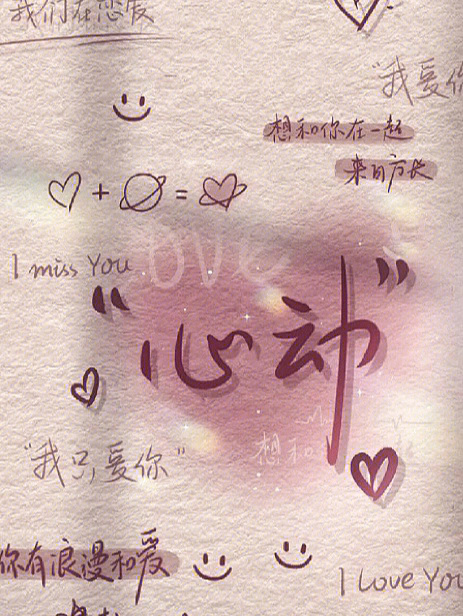 我们在恋爱
"我爱你
想和你在一起
来日方长
+ =
Love
I miss You
"心动"
想和
"我只爱你"
你有浪漫和爱
I Love You